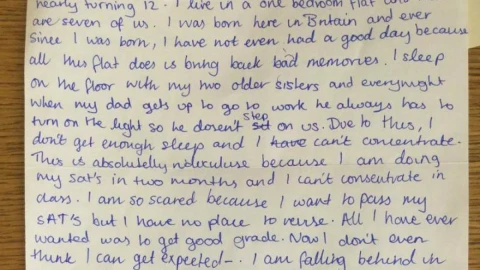 nearly turning 12. I live in a one bedroom flat and
are seven of us. I was born here in Britain and ever
since I was born, I have not even had a good day because
all this flat does is bring back bad memories. I sleep
on the floor with my two older sisters and everynight
when my dad gets up to go to work he always has to
turn on the light so he dosen't step on us. Due to this, I
don't get enough sleep and I have can't concentrate.
This is absolutelly rediculuse because I am doing
my sat's in two months and I can't consentrate in
class. I am so scared because I want to pass my
SAT's but I have no place to revise. All I have ever
wanted was to get good grade. Now I don't even
think I can get expected-. I am falling behind in